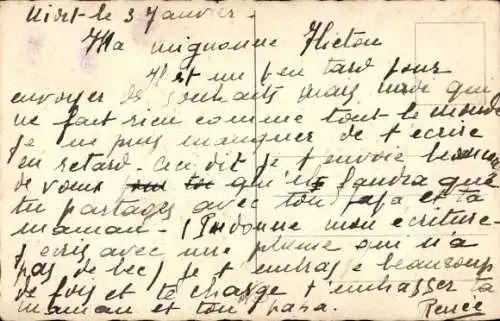 Niort le 3 Janvier.
Ma mignonne
Il est un peu tard pour
envoyer des souhaits mais moi qui
ne fait rien comme tout le monde
je ne puis manquer de t'écrire
en retard ceci dit je t'envoie beaucoup
de vœux qu'il faudra que
tu partages avec ton papa et ta
maman - (Pardonne mon écriture
j'ecris avec une plume qui n'a
pas de bec) je t'embrasse beaucoup
de fois et te charge d'embrasser ta
maman et ton papa. Renée